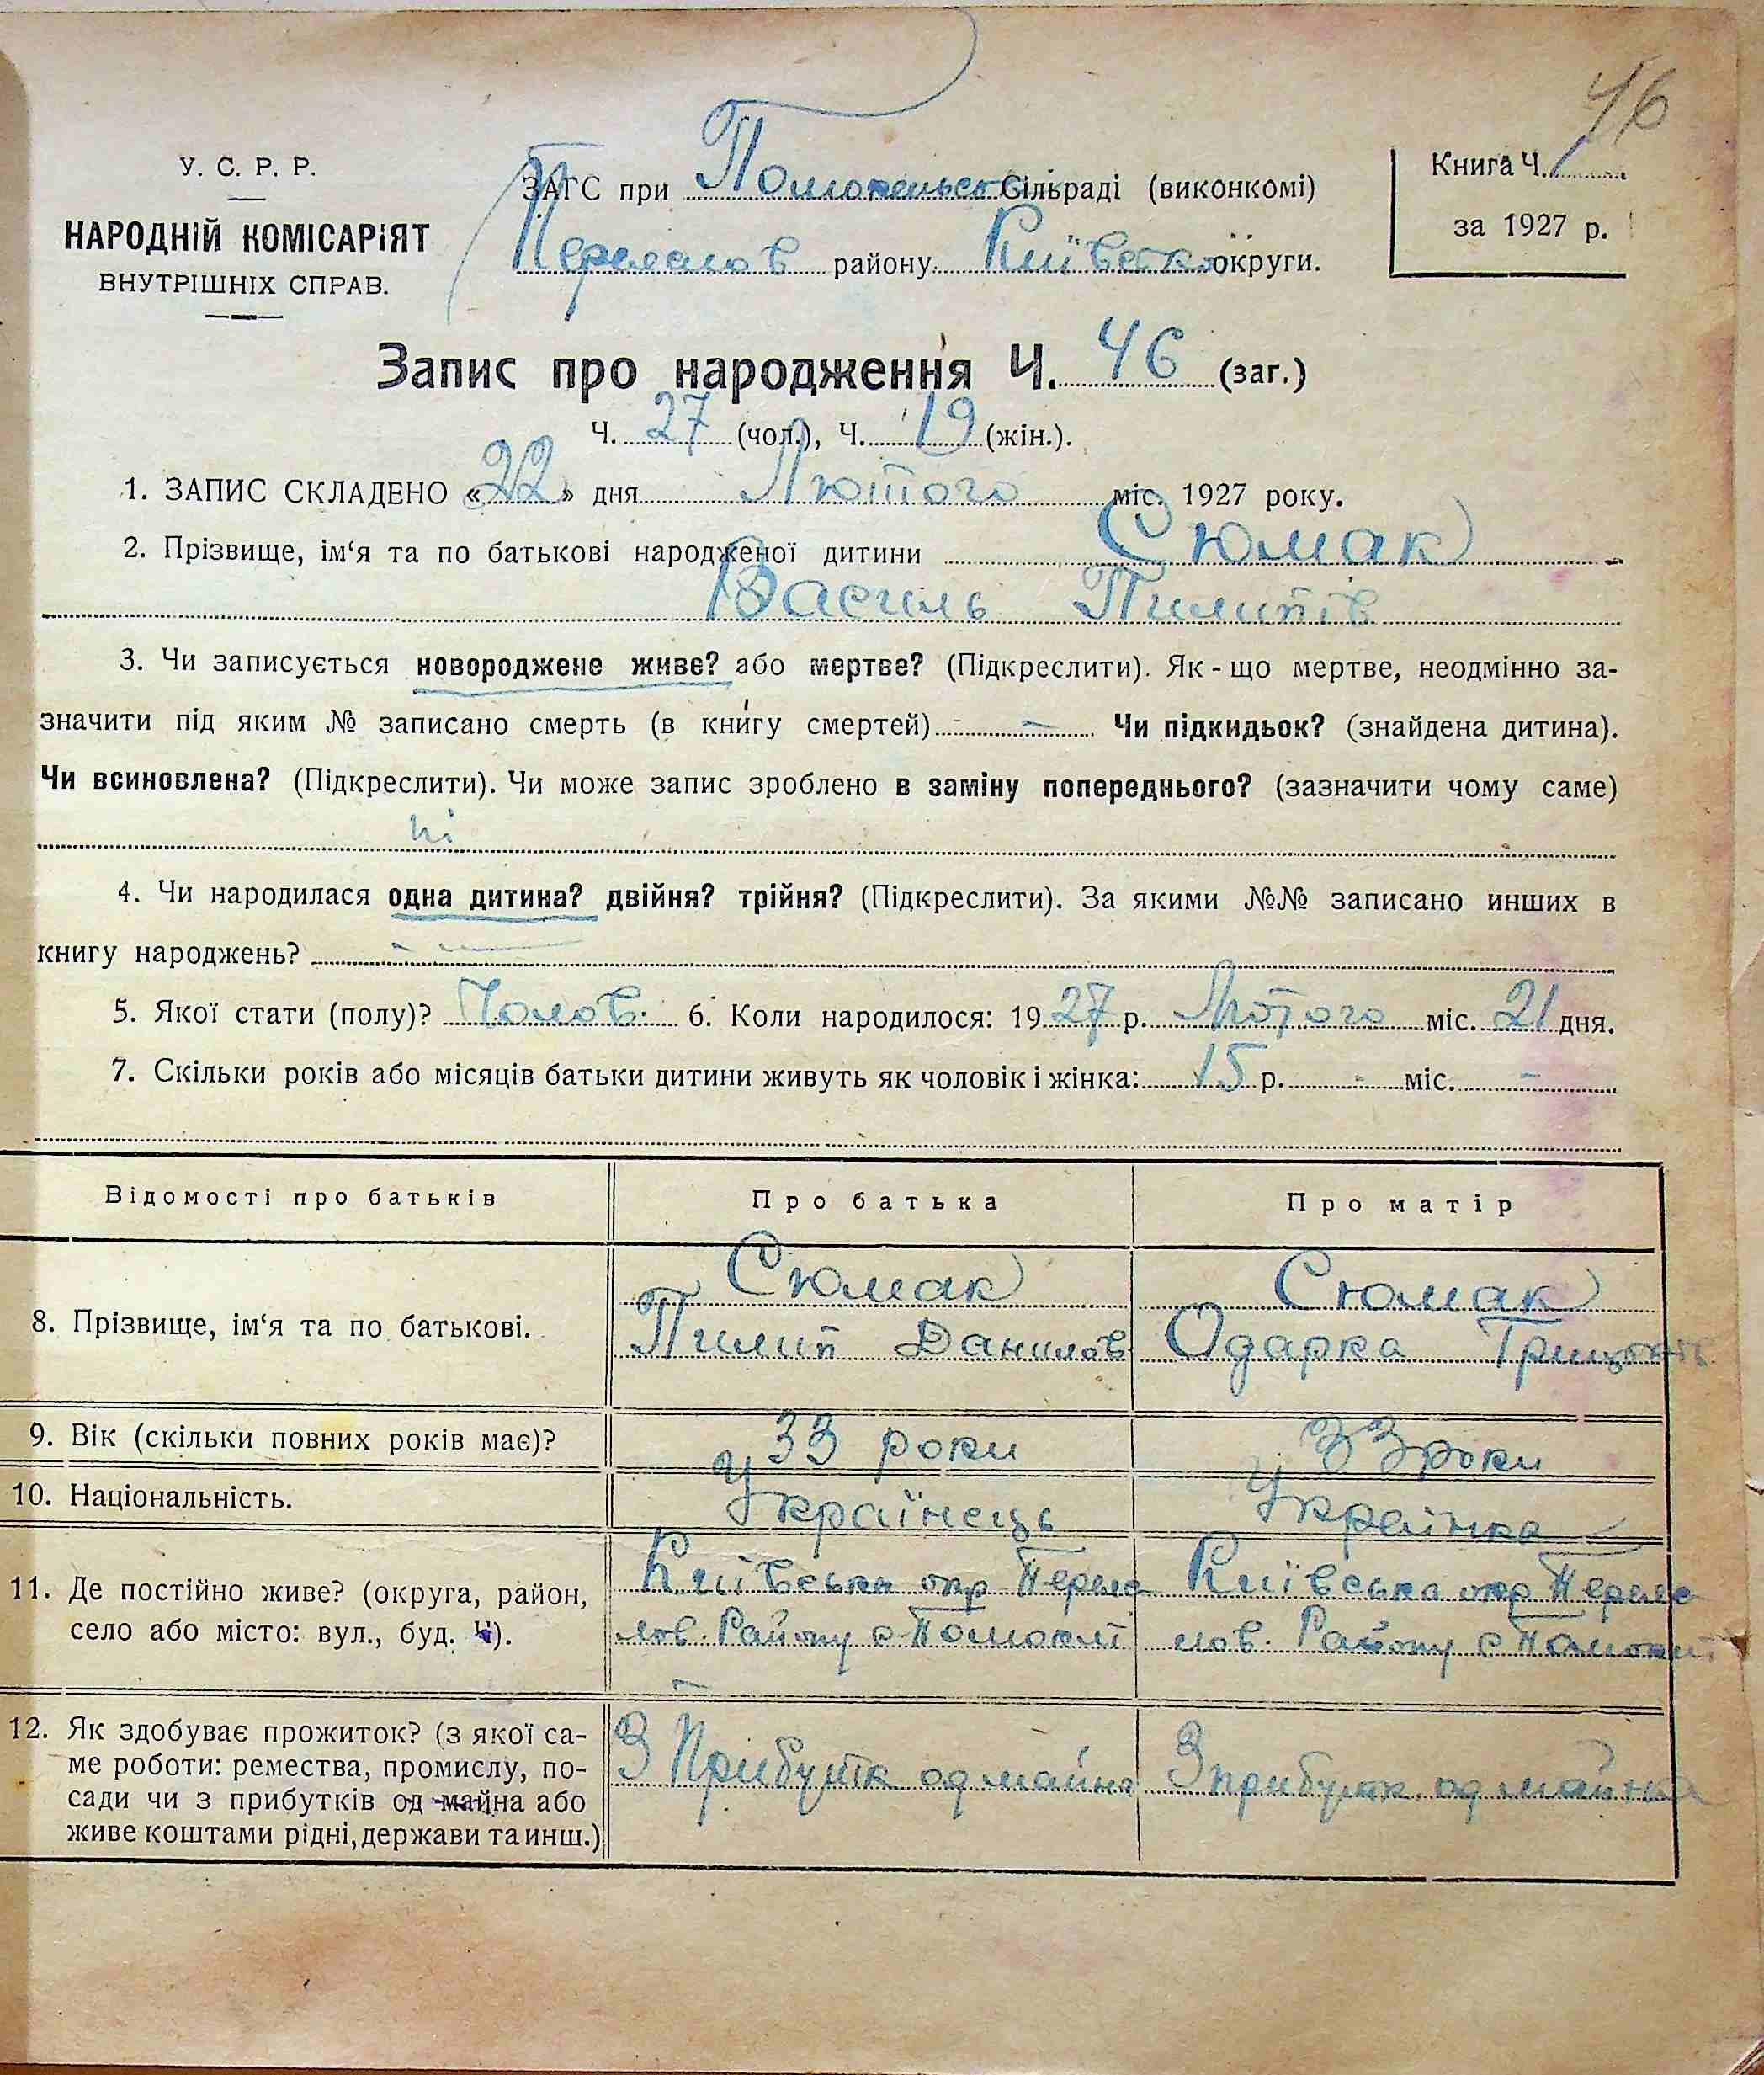 46
У. С. Р. Р.
НАРОДНІЙ КОМІСАРІЯТ
ВНУТРІШНІХ СПРАВ.
ЗАГС при Помокельськ Сільраді (виконкомі)
Переяслов району Київської округи.
Книга Ч. 1
за 1927 р.
Запис про народження Ч. 46 (заг.)
Ч. 27 (чол.), Ч. 19 (жін.).
1. ЗАПИС СКЛАДЕНО «22» дня Лютого міс. 1927 року.
2. Прізвище, ім‘я та по батькові народженої дитини Сюмак
Василь Пилипів
3. Чи записується новороджене живе? або мертве? (Підкреслити). Як-що мертве, неодмінно за-
значити під яким № записано смерть (в книгу смертей) — Чи підкидьок? (знайдена дитина).
Чи всиновлена? (Підкреслити). Чи може запис зроблено в заміну попереднього? (зазначити чому саме)
ні
4. Чи народилася одна дитина? двійня? трійня? (Підкреслити). За якими №№ записано инших в
книгу народжень? —
5. Якої стати (полу)? Чолов. 6. Коли народилося: 1927 р. Лютого міс. 21 дня.
7. Скільки років або місяців батьки дитини живуть як чоловік і жінка: 15 р. - міс. -
Відомості про батьків Про батька Про матір
8. Прізвище, ім‘я та по батькові.
Сюмак
Пилип Данилов
Сюмак
Одарка
9. Вік (скільки повних років має)? 33 роки 33 роки
10. Національність. Українець Українка
11. Де постійно живе? (округа, район,
село або місто: вул., буд. Ч).
Київська окр Перея
слов. Району с
Київська окр Перея
слов. Району с
12. Як здобуває прожиток? (з якої са-
ме роботи: ремества, промислу, по-
сади чи з прибутків од майна або
живе коштами рідні, держави та инш.)
З Прибутк од майна
З прибутк. од майна